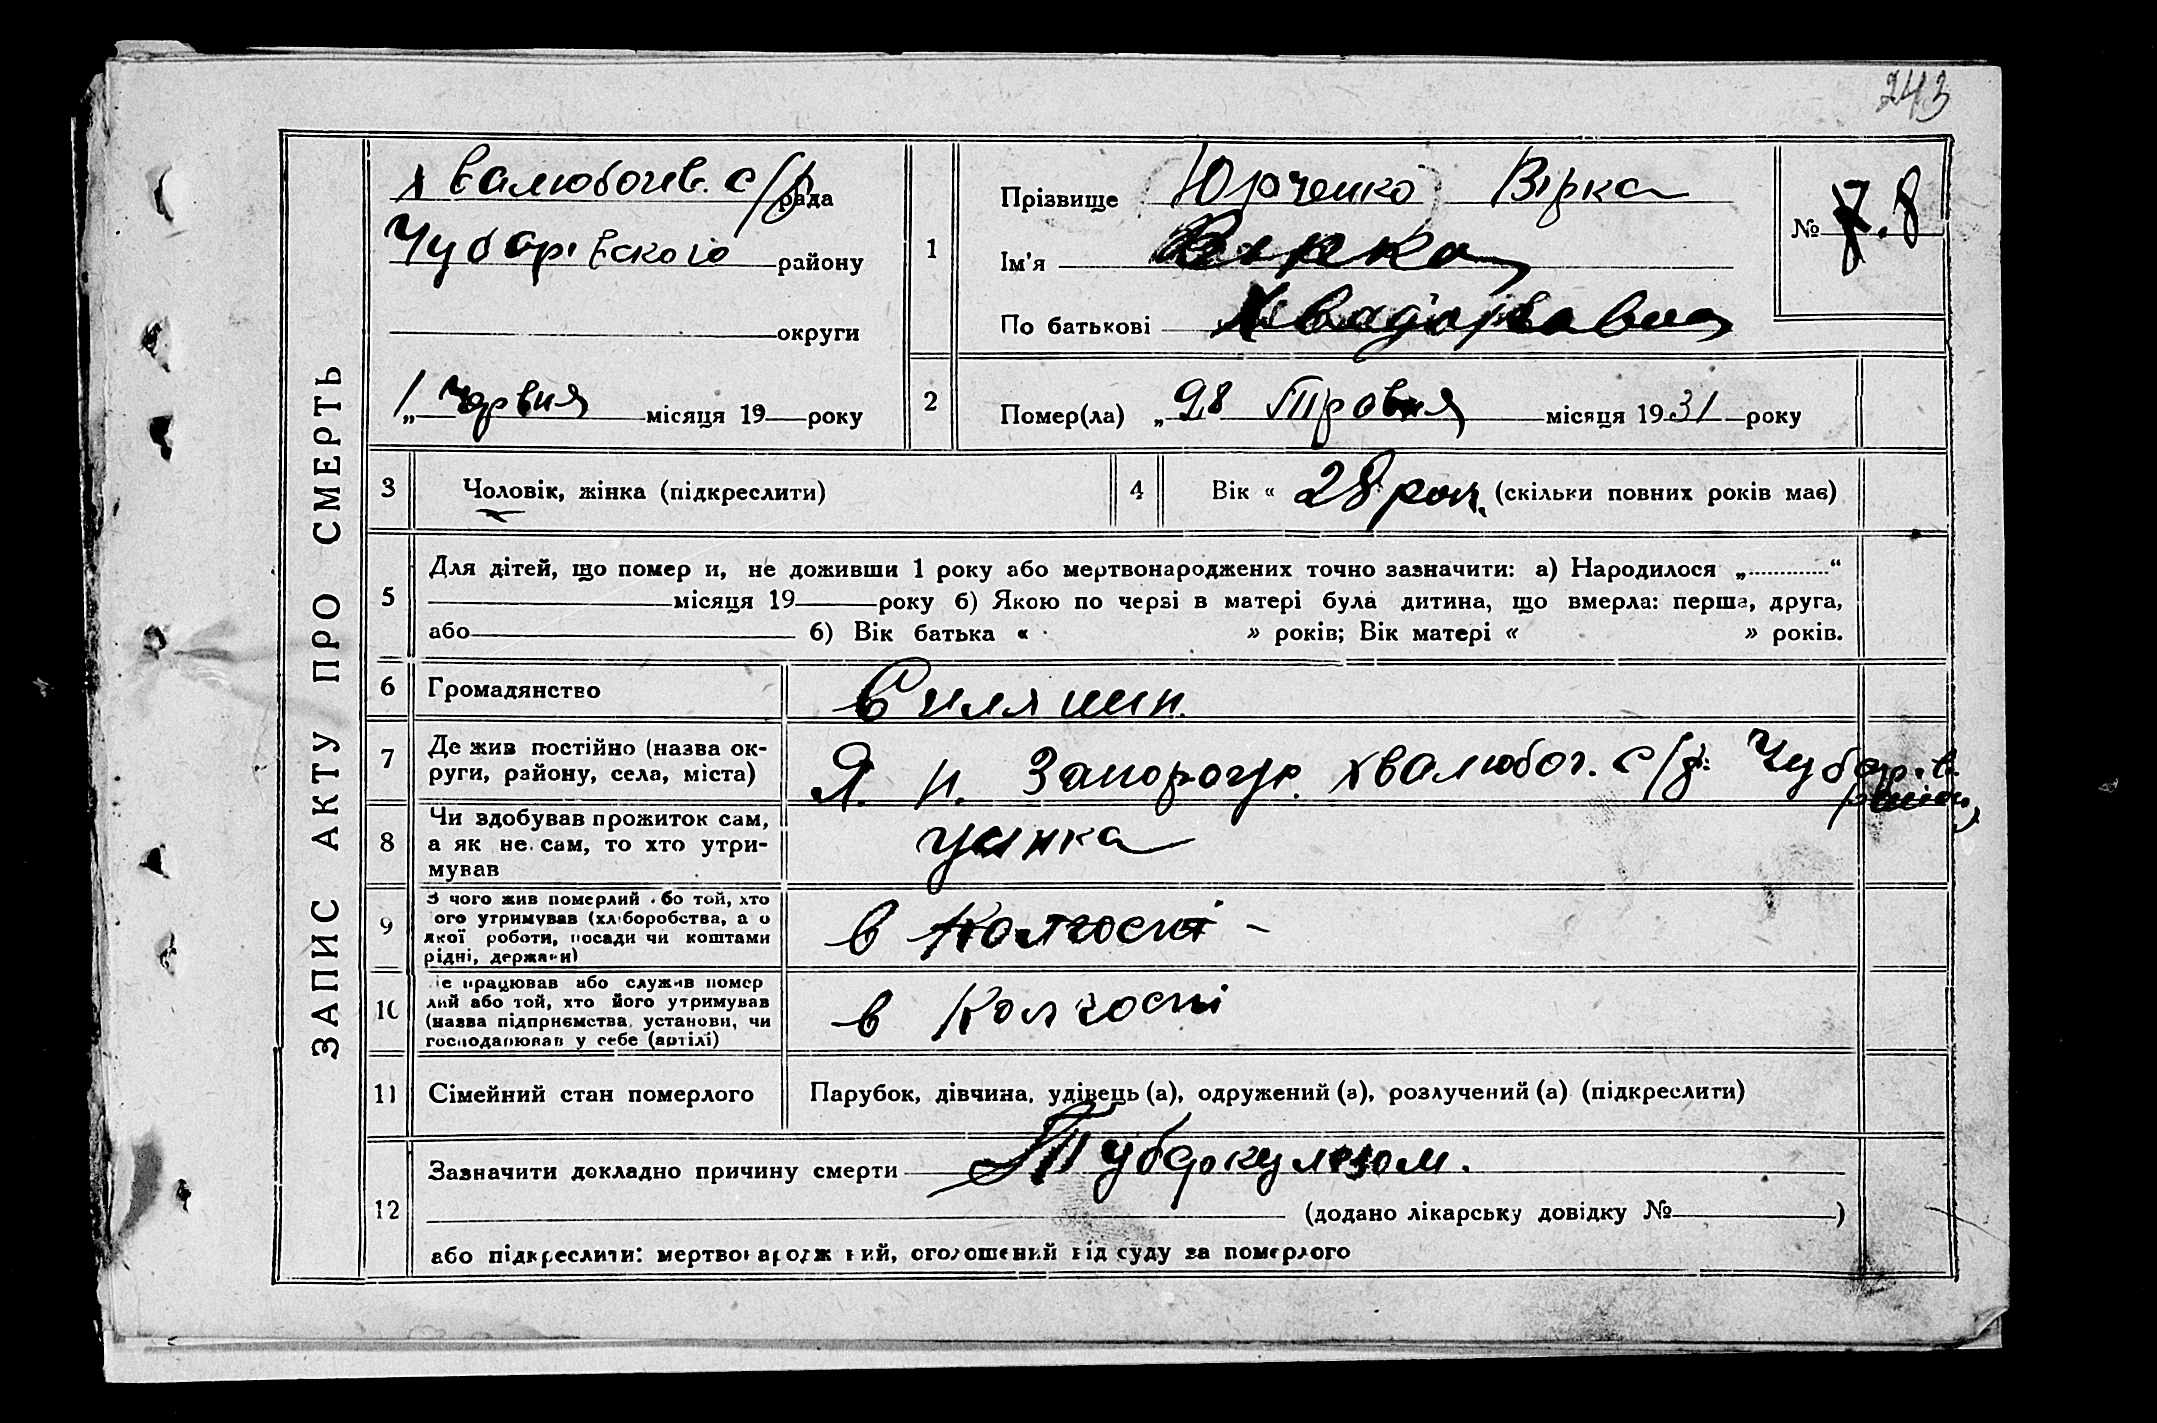 243
ЗАПИС АКТУ ПРО СМЕРТЬ
Хвалюбогив. с/р рада
Чубарівского району
округи
„1 Червня місяця 19 року
1
Прізвище Юрченко Вірка
Ім'я Вирка
По батькові
№ 7. 8
2
Помер(ла) „28 Тровня місяця 1931 року
3
Чоловік, жінка (підкреслити)
4
Вік « 28 рок. (скільки повних років має)
5
Для дітей, що помер и, не доживши 1 року або мертвонароджених точно зазначити: а) Народилося „ “
місяця 19 року б) Якою по черзі в матері була дитина, що вмерла: перша, друга,
або б) Вік батька « » років; Вік матері « » років.
6
Громадянство
7
Де жив постійно (назва ок-
руги, району, села, міста)
Запорогр. хвалюбог. с/р. Чубарів.
8
Чи здобував прожиток сам,
а як не сам, то хто утри-
мував
9
З чого жив померлий або той, хто
ого утримував (хліборобства, а о
якої роботи, посади чи коштами
рідні, держави)
в Колгоспі -
10
е працював або служив помер
лий або той, хто його утримував
(назва підприємства, установи, чи
господарював у себе (артілі)
в Колгоспі
11
Сімейний стан померлого
Парубок, дівчина, удівець (а), одружений (а), розлучений (а) (підкреслити)
12
Зазначити докладно причину смерти Туберкулезом.
(додано лікарську довідку № )
або підкреслити: мертвонароджений, оголошений від суду за померлого